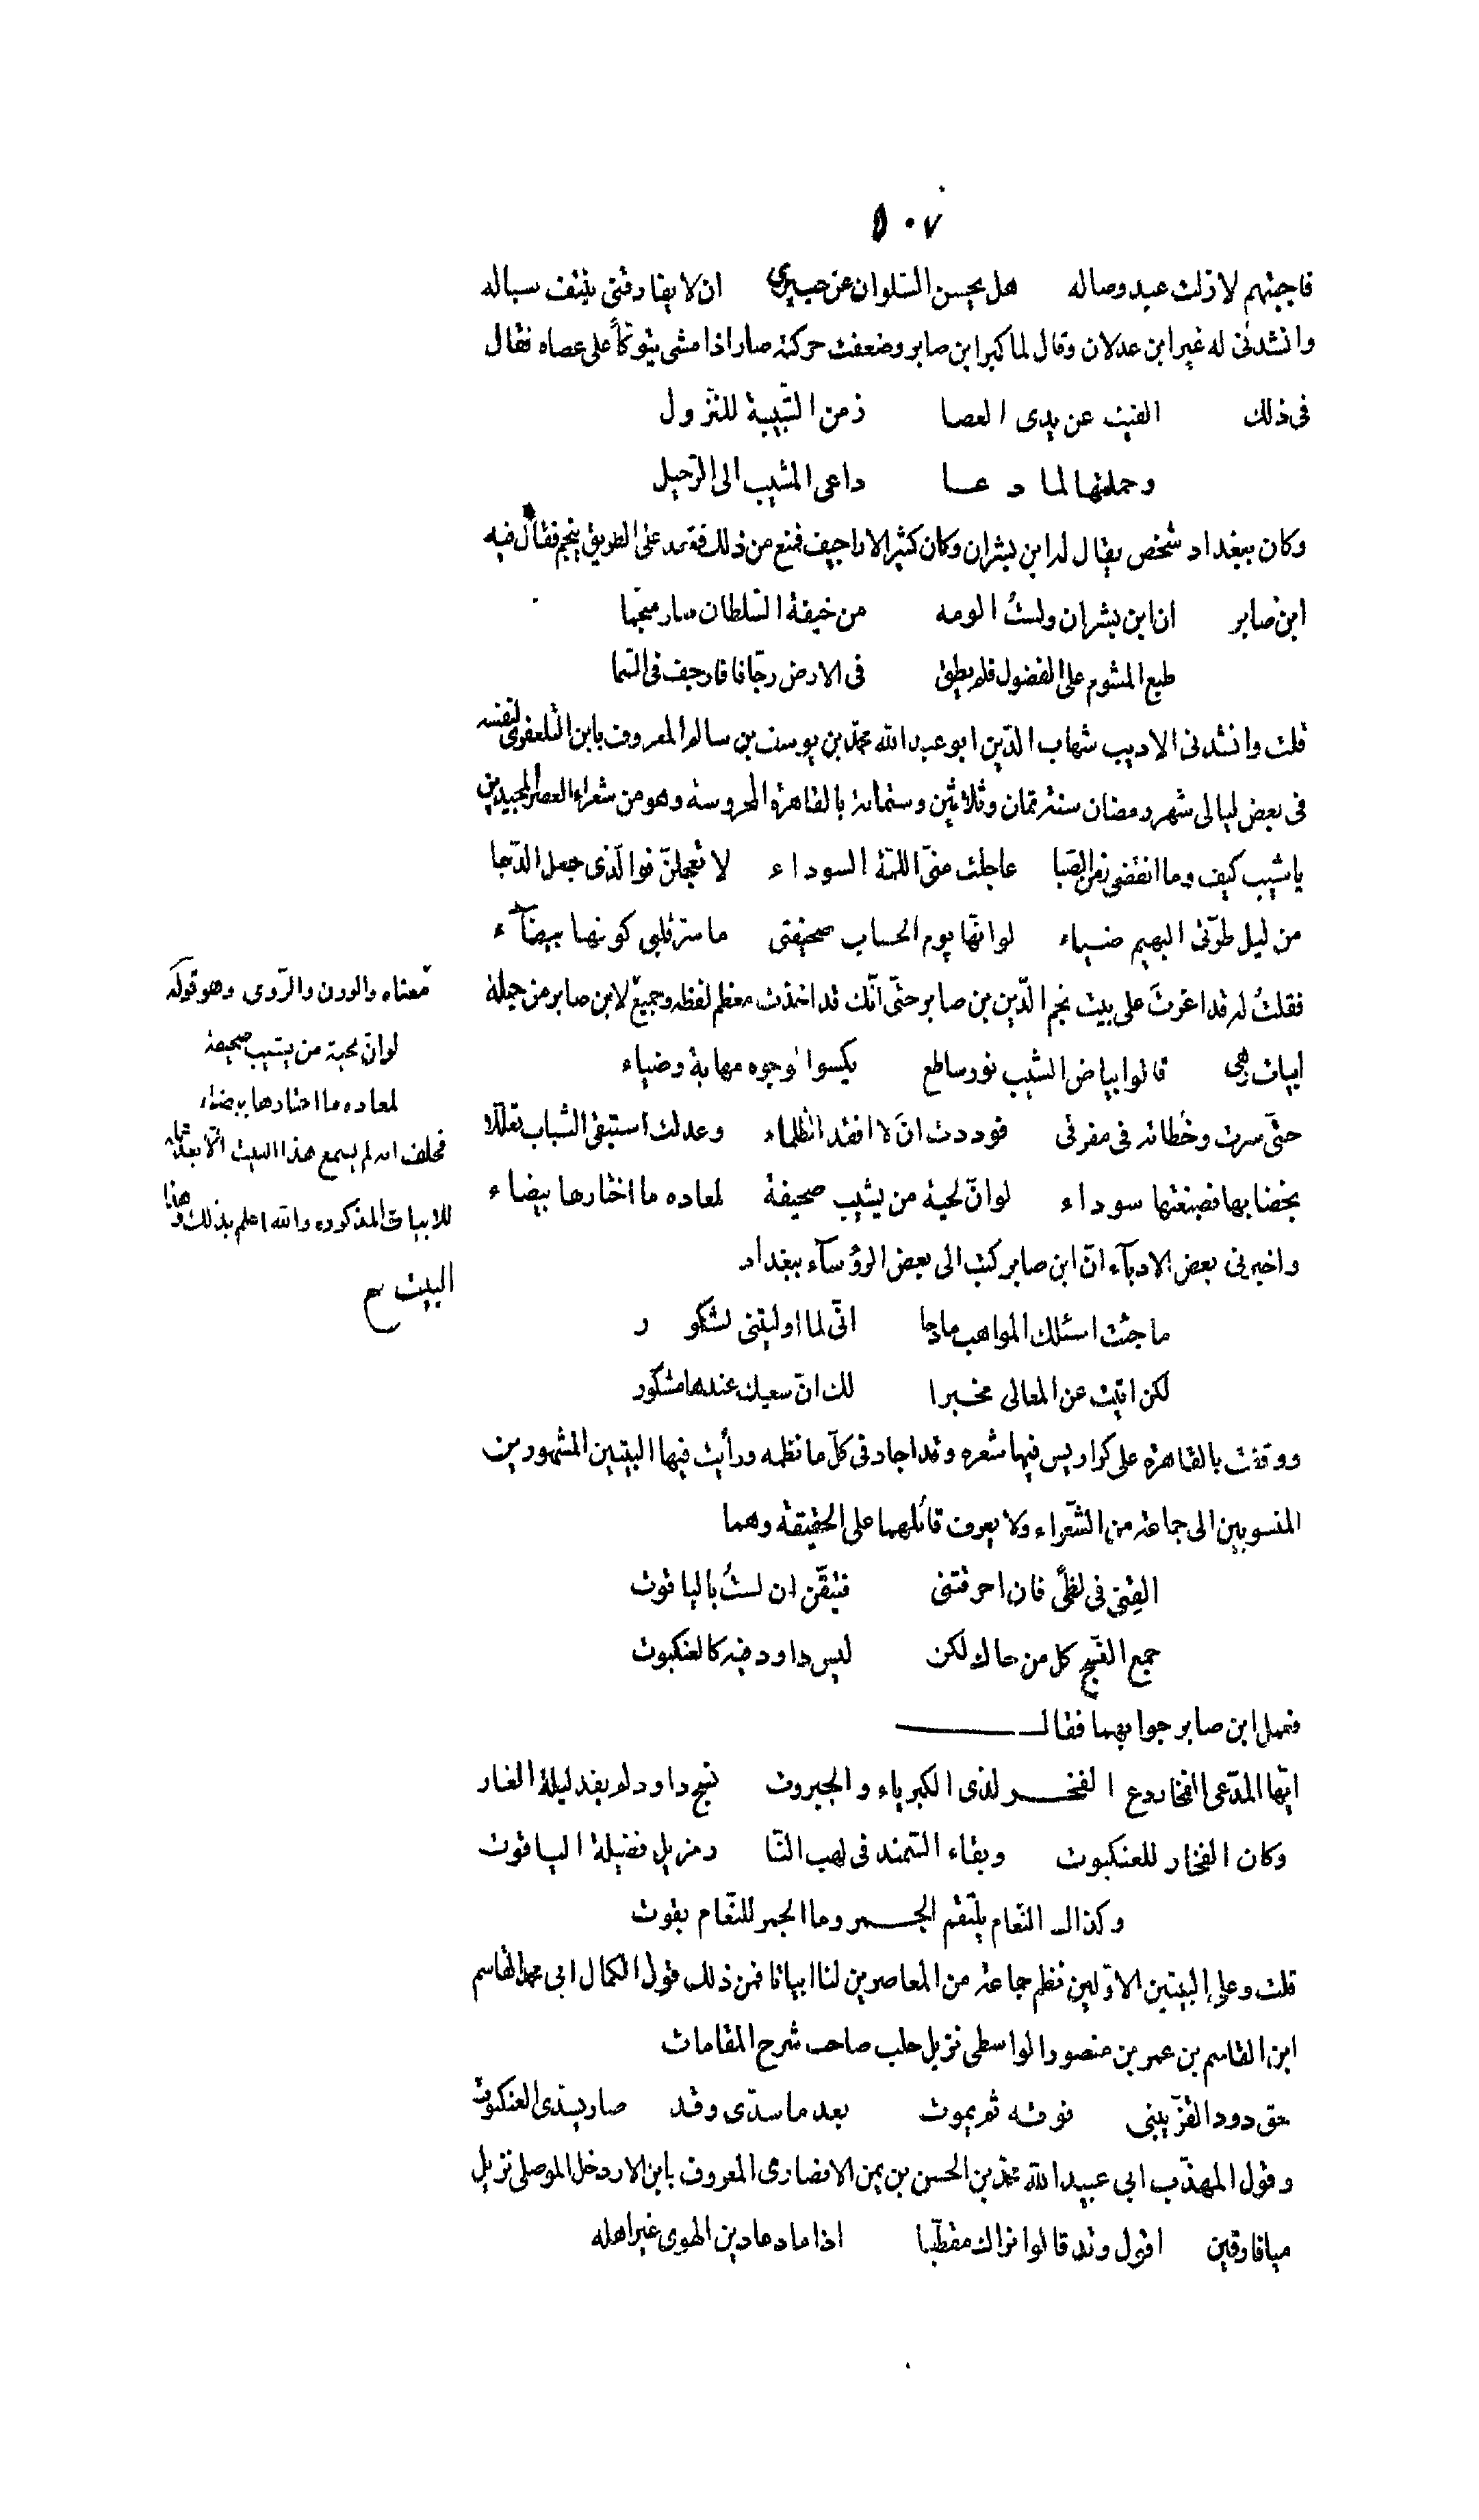 ٥٠٧
فاجبتهم لا زلت عبد وصاله هل يحسن السّلوان عن حبيبي ان لا يفارقني بنتف سباله
وانشدني له غير ابن عدلان وقال لما كبر ابن صابر وضعفت حركته صار اذا مشى يتوكّأ على عصاه فقال
في ذلك القيت عن يدي العصا زمن الشّبيبة للنّزول
وحملتها لما دعا داعي المشيب الى الرّحيل
وكان ببغداد شخص يقال له ابن بشران وكان كثير الاراجيف فمنع من ذلك فقعد على الطريق ينجم فقال فيه
ابن صابر ان ابن بشران ولستُ الومه من خيفة السّلطان صار منجّما
طبع المشوم على الفضول فلم يطق في الارض رجّافا فارجف في السّما
قلت وانشدني الاديب شهاب الدّين ابو عبد الله محمّد بن يوسف بن سالم المعروف بابن التلعفري لنفسه
في بعض ليالي شهر رمضان سنة ثمان وثلاثين وستمائة بالقاهرة المحروسة وهو من شعراء العصر المجيدين
يا شيب كيف وما انقضى زمن الصّبا عاجلت منّي اللمّة السوداء لا تعجلنّ فوالّذي جعل الدّجا
من ليل طرّتي البهيم ضياء لو انّها يوم الحساب صحيفتي ما سرّ قلبي كونها بيضآء
فقلتُ له قد اغرتَ على بيت نجم الدّين بن صابر حتّى انّك قد اخذت معظم لفظه وجميع لابن صابر من جملة
ابيات وهي قالوا بياض الشّيب نور ساطع يكسوا لوجوه مهابة وضياء
حتّى سرت وخطاته في مفرقي فوددت ان لا افقد الظلماء وعدلت استبقي الشباب تعلّلا
بخضابها فصبغتها سوداء لو انّ لحية من يشيب صحيفة لمعاده ما اختارها بيضاء
واخبرني بعض الادبآء انّ ابن صابر كتب الى بعض الرؤسآء ببغداد
ما جئت اسئلك المواهب مادحا انّي لما اوليتني لشكور
لكن اتيت عن المعالي مخبرا لك انّ سعيك عندها مشكور
ووقفت بالقاهرة على كراريس فيها شعره وقد اجاد في كلّ ما نظمه ورأيت فيها البيتين المشهورين
المنسوبين الى جماعة من الشّعراء ولا يعرف قائلهما على الحقيقة وهما
القني في لظًى فان احرقتني فتيقّن ان لستُ بالياقوت
جمع النّسج كل من حاك لكن ليس داود فيه كالعنكبوت
فعمل ابن صابر جوابهما فقال
ايّها المدّعي الفخار دع الفخر لذي الكبرياء والجبروت نسج داود لم يفد ليلة الغار
وكان الفخار للعنكبوت وبقاء السّمند في لهب النّا ر مزيل فضيلة الياقوت
وكذاك النّعام يلتقم الجمر وما الجمر للنّعام بقوت
قلت وعلى البيتين الاوّلين نظم جماعة من المعاصرين لنا ابياتا فمن ذلك قول الكمال ابي محمد القاسم
ابن القاسم بن عمر بن منصور الواسطي نزيل حلب صاحب شرح المقامات
دود القزّ يبني فوقه ثم يموت بعد ما سدّى وقد صار يسدّى العنكبوت
وقول المهذّب ابي عبيد الله محمّد بن الحسن بن يمن الانصاري المعروف بابن الاردخل الموصلي نزيل
ميافارقين اقول وقد قالوا نراك مقطّبا اذا ما دعا دين الهوى غير اهله
معناه والوزن والرّوي وهو قوله
لو انّ لحية من يشيب صحيفة
لمعاده ما اختارها بيضاء
فحلف انه لم يسمع هذا البيت الّا بعد
للابيات المذكورة والله اعلم بذلك وهذا
البيت